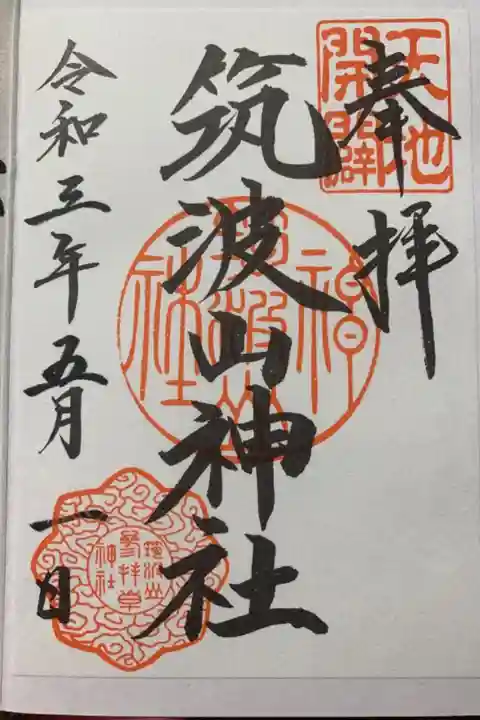 奉拝
天地
開闢
筑波山神社
筑波山
神社
令和三年五月一日
筑波山
参拝章
神社